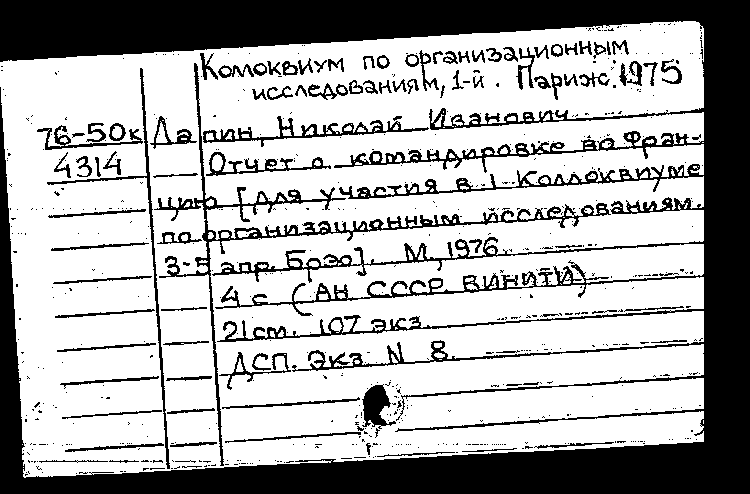 Коллоквиум по организационным
исследованиям, 1-й. Париж. 1975
76-50к Лапин, Николай Иванович
4314 Отчет о командировке во Фран-
цию [для участия в I Коллоквиуме
по организационным исследованиям.
3-5 апр. Брэо]. М, 1976.
4 с (АН СССР. ВИНИТИ)
21 см. 107 экз.
ДСП. Экз N 8.